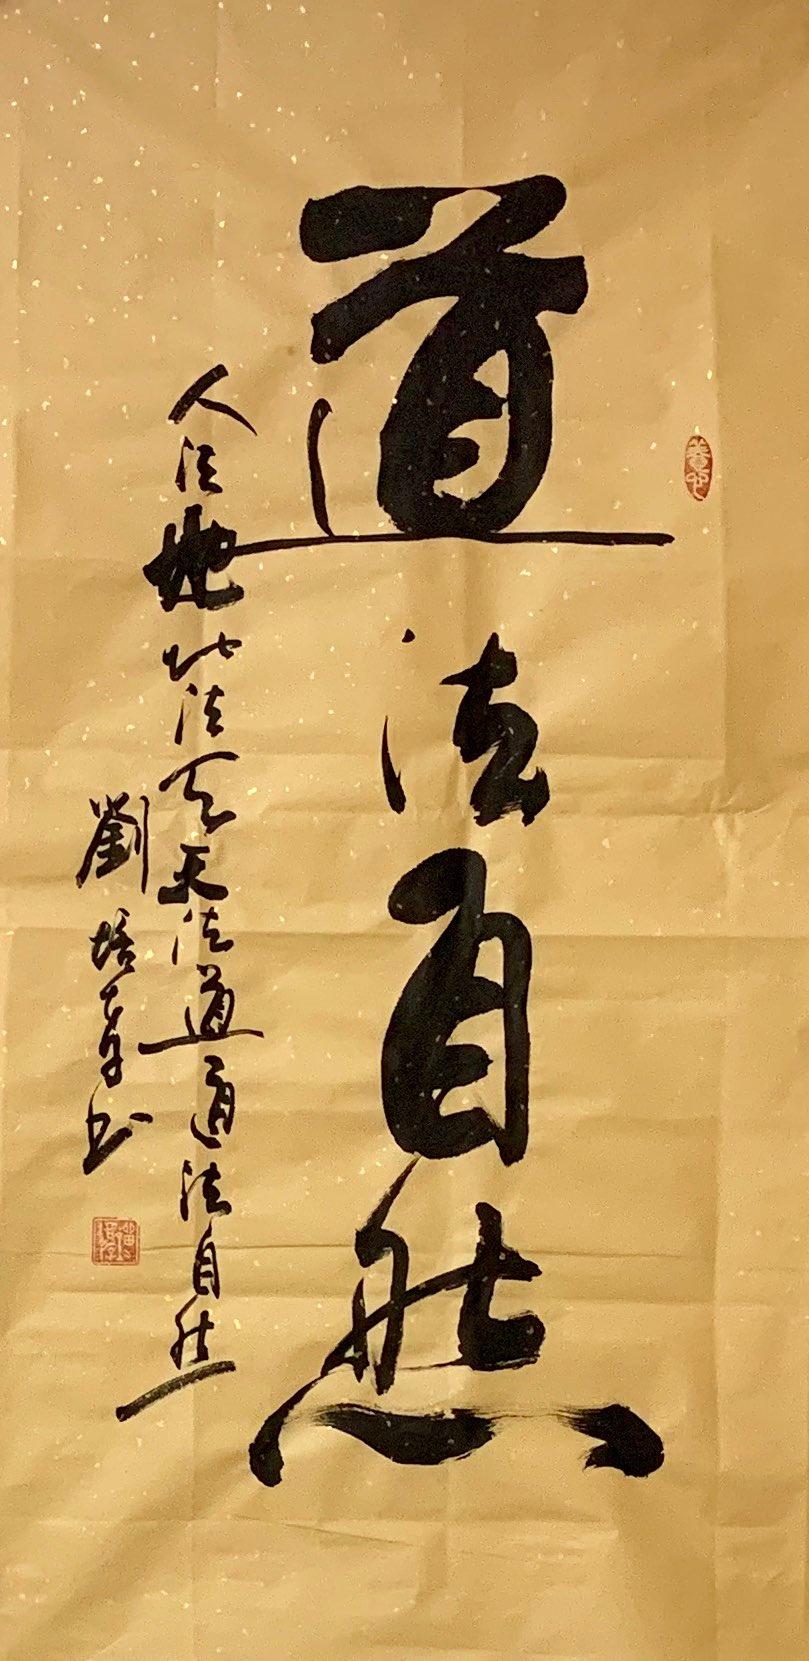 道法自然
人法地地法天天法道道法自然
劉培章书